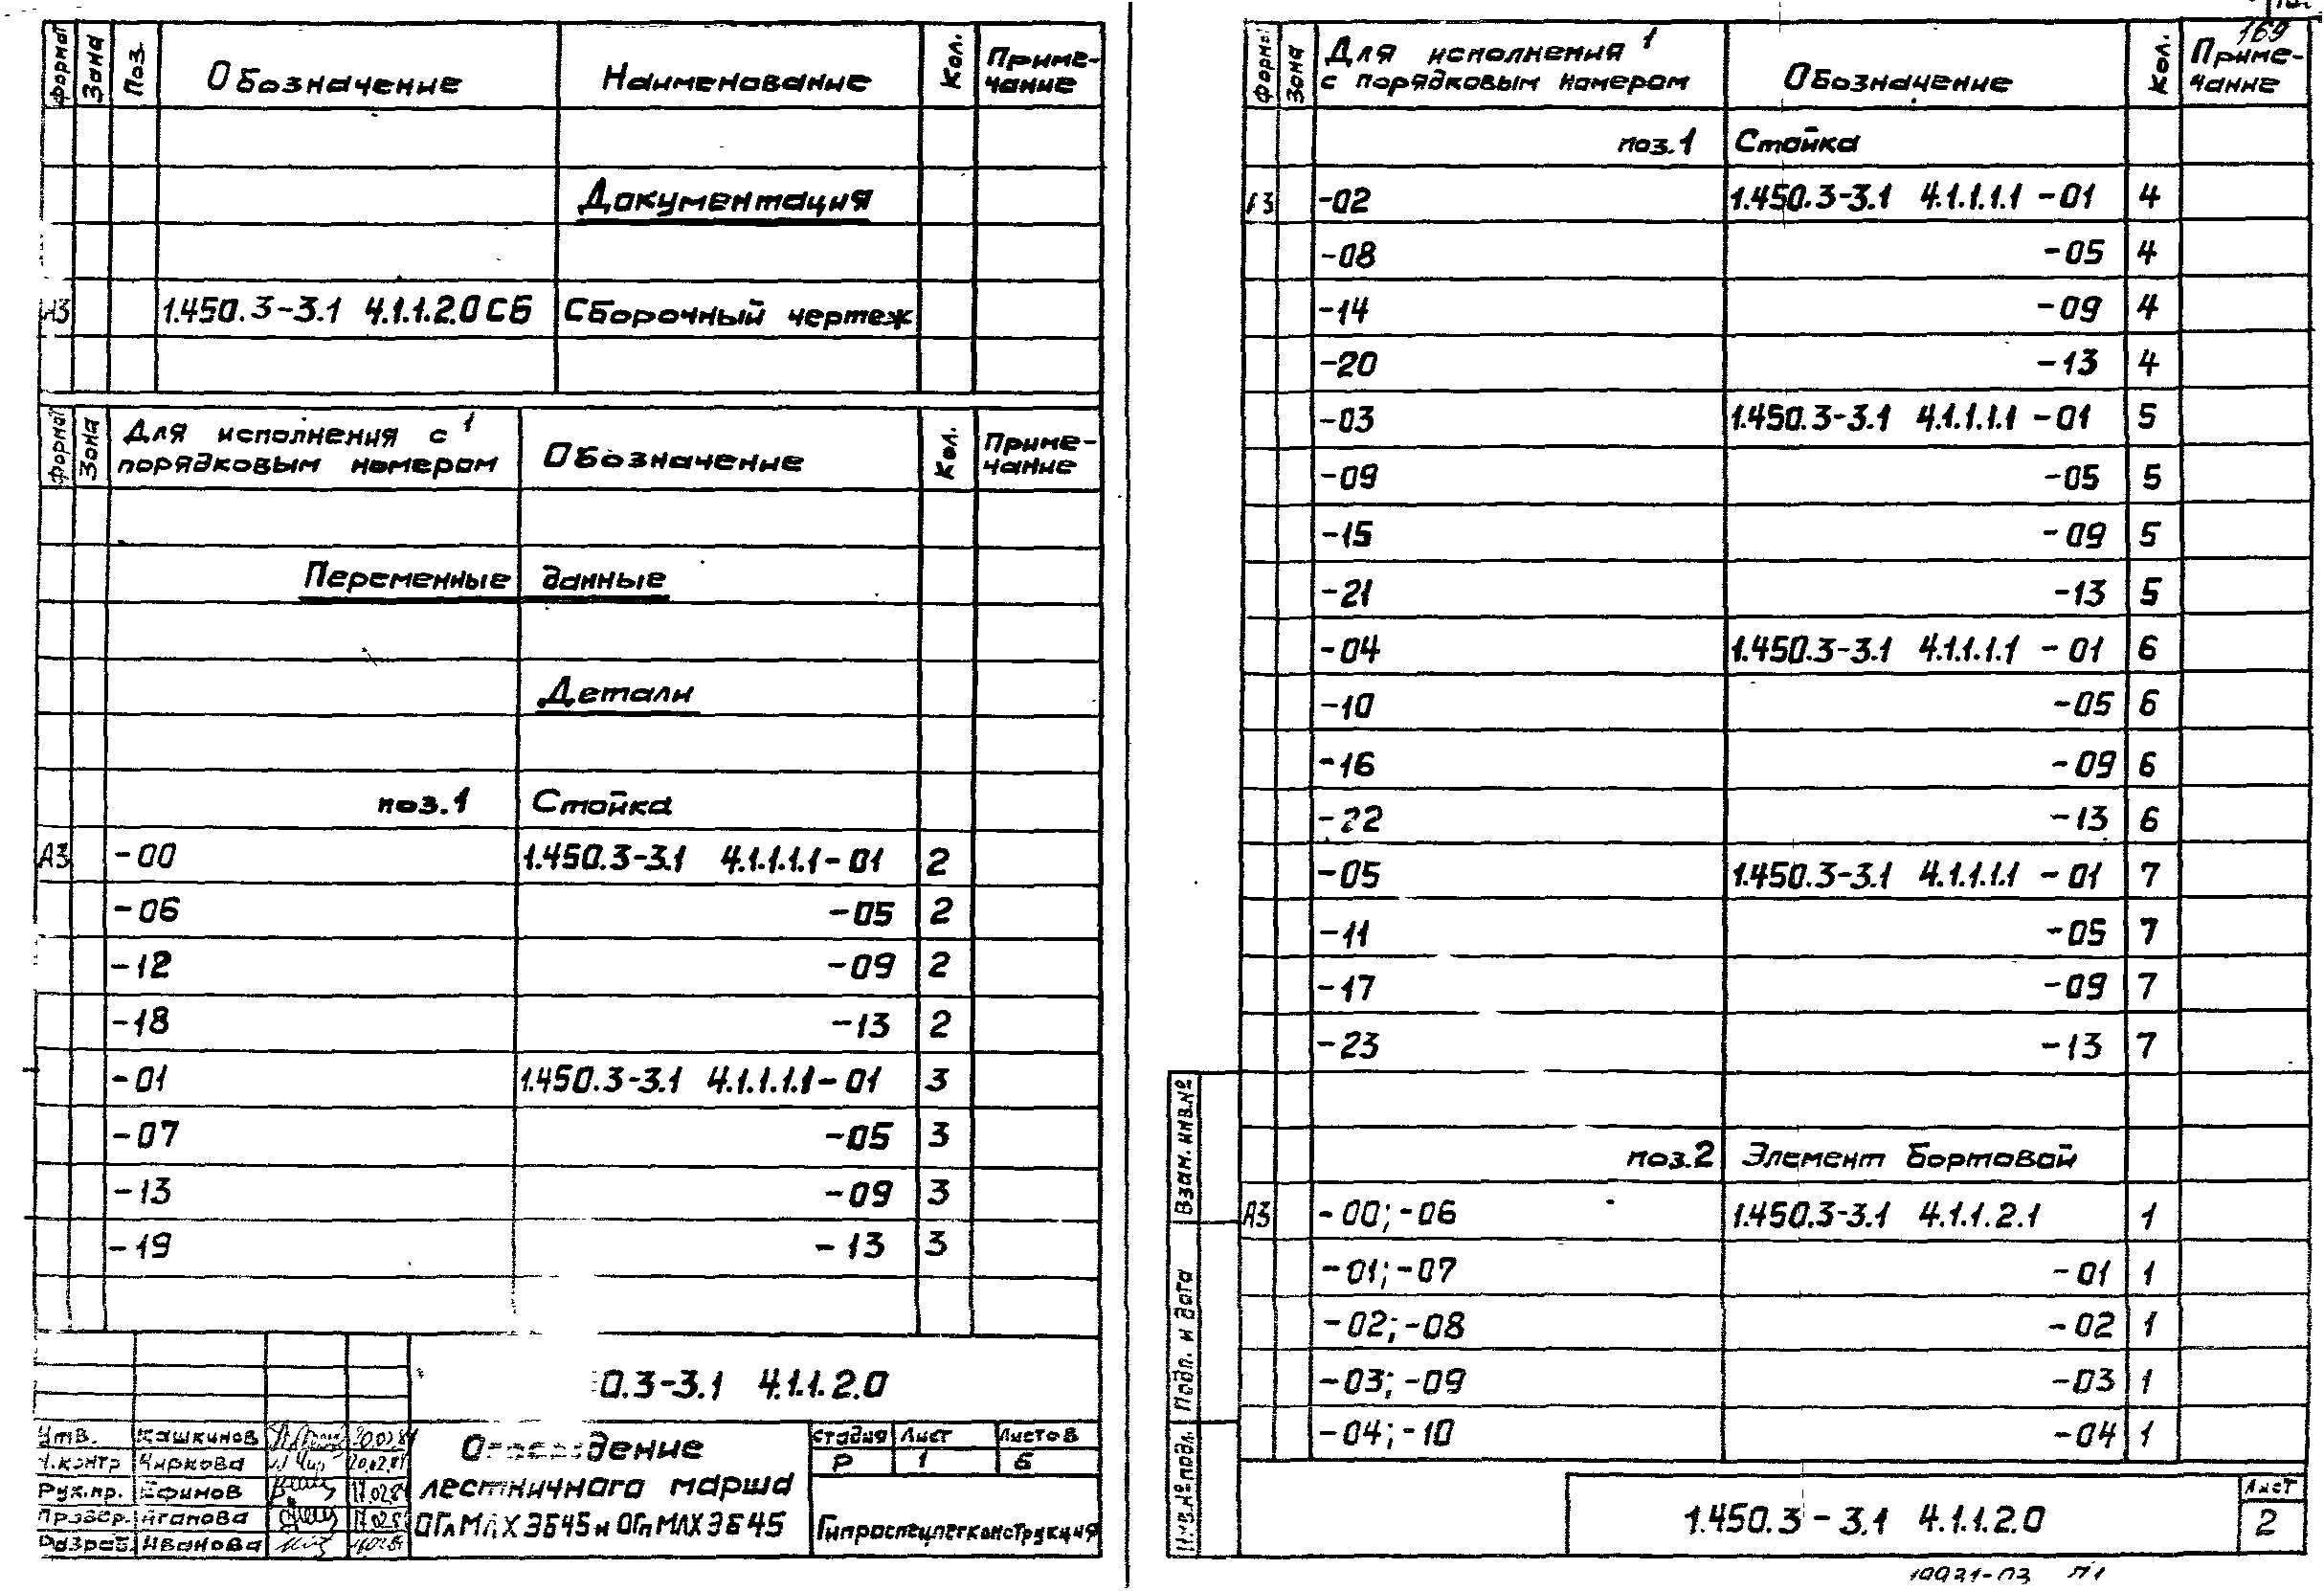 Формат Зона Поз. Обозначение Наименование Кол. Приме-
чание
Документация
А3 1.450.3-3.1 4.1.1.2.0 СБ Сборочный чертеж
Формат Зона Для исполнения с 1 Обозначение Кол. Приме-
порядковым номером чание
Переменные данные
Детали
поз.1 Стойка
А3 -00 1.450.3-3.1 4.1.1.1.1-01 2
-06 -05 2
-12 -09 2
-18 -13 2
-01 1.450.3-3.1 4.1.1.1.1-01 3
-07 -05 3
-13 -09 3
-19 -13 3
0.3-3.1 4.1.1.2.0
Утв. Кашкинов
Н.контр Чиркова
Рук.пр. Ефимов
Провер. Агапова
Разраб. Иванова
лестничного марша
ОГлМЛХЭБ45 и ОГпМЛХЭБ45
Стадия Лист Листов
Р 1 6
Гипроспецлегконструкция
169
Формат Зона Для исполнения 1 Обозначение Кол. Приме-
с порядковым номером чание
поз.1 Стойка
А3 -02 1.450.3-3.1 4.1.1.1.1 -01 4
-08 -05 4
-14 -09 4
-20 -13 4
-03 1.450.3-3.1 4.1.1.1.1 -01 5
-09 -05 5
-15 -09 5
-21 -13 5
-04 1.450.3-3.1 4.1.1.1.1 -01 6
-10 -05 6
-16 -09 6
-22 -13 6
-05 1.450.3-3.1 4.1.1.1.1 -01 7
-11 -05 7
-17 -09 7
-23 -13 7
поз.2 Элемент бортовой
А3 -00; -06 1.450.3-3.1 4.1.1.2.1 1
-01; -07 -01 1
-02; -08 -02 1
-03; -09 -03 1
-04; -10 -04 1
Взам. инв.№
Подп. и дата
Инв.№ подл.
1.450.3-3.1 4.1.1.2.0
Лист
2